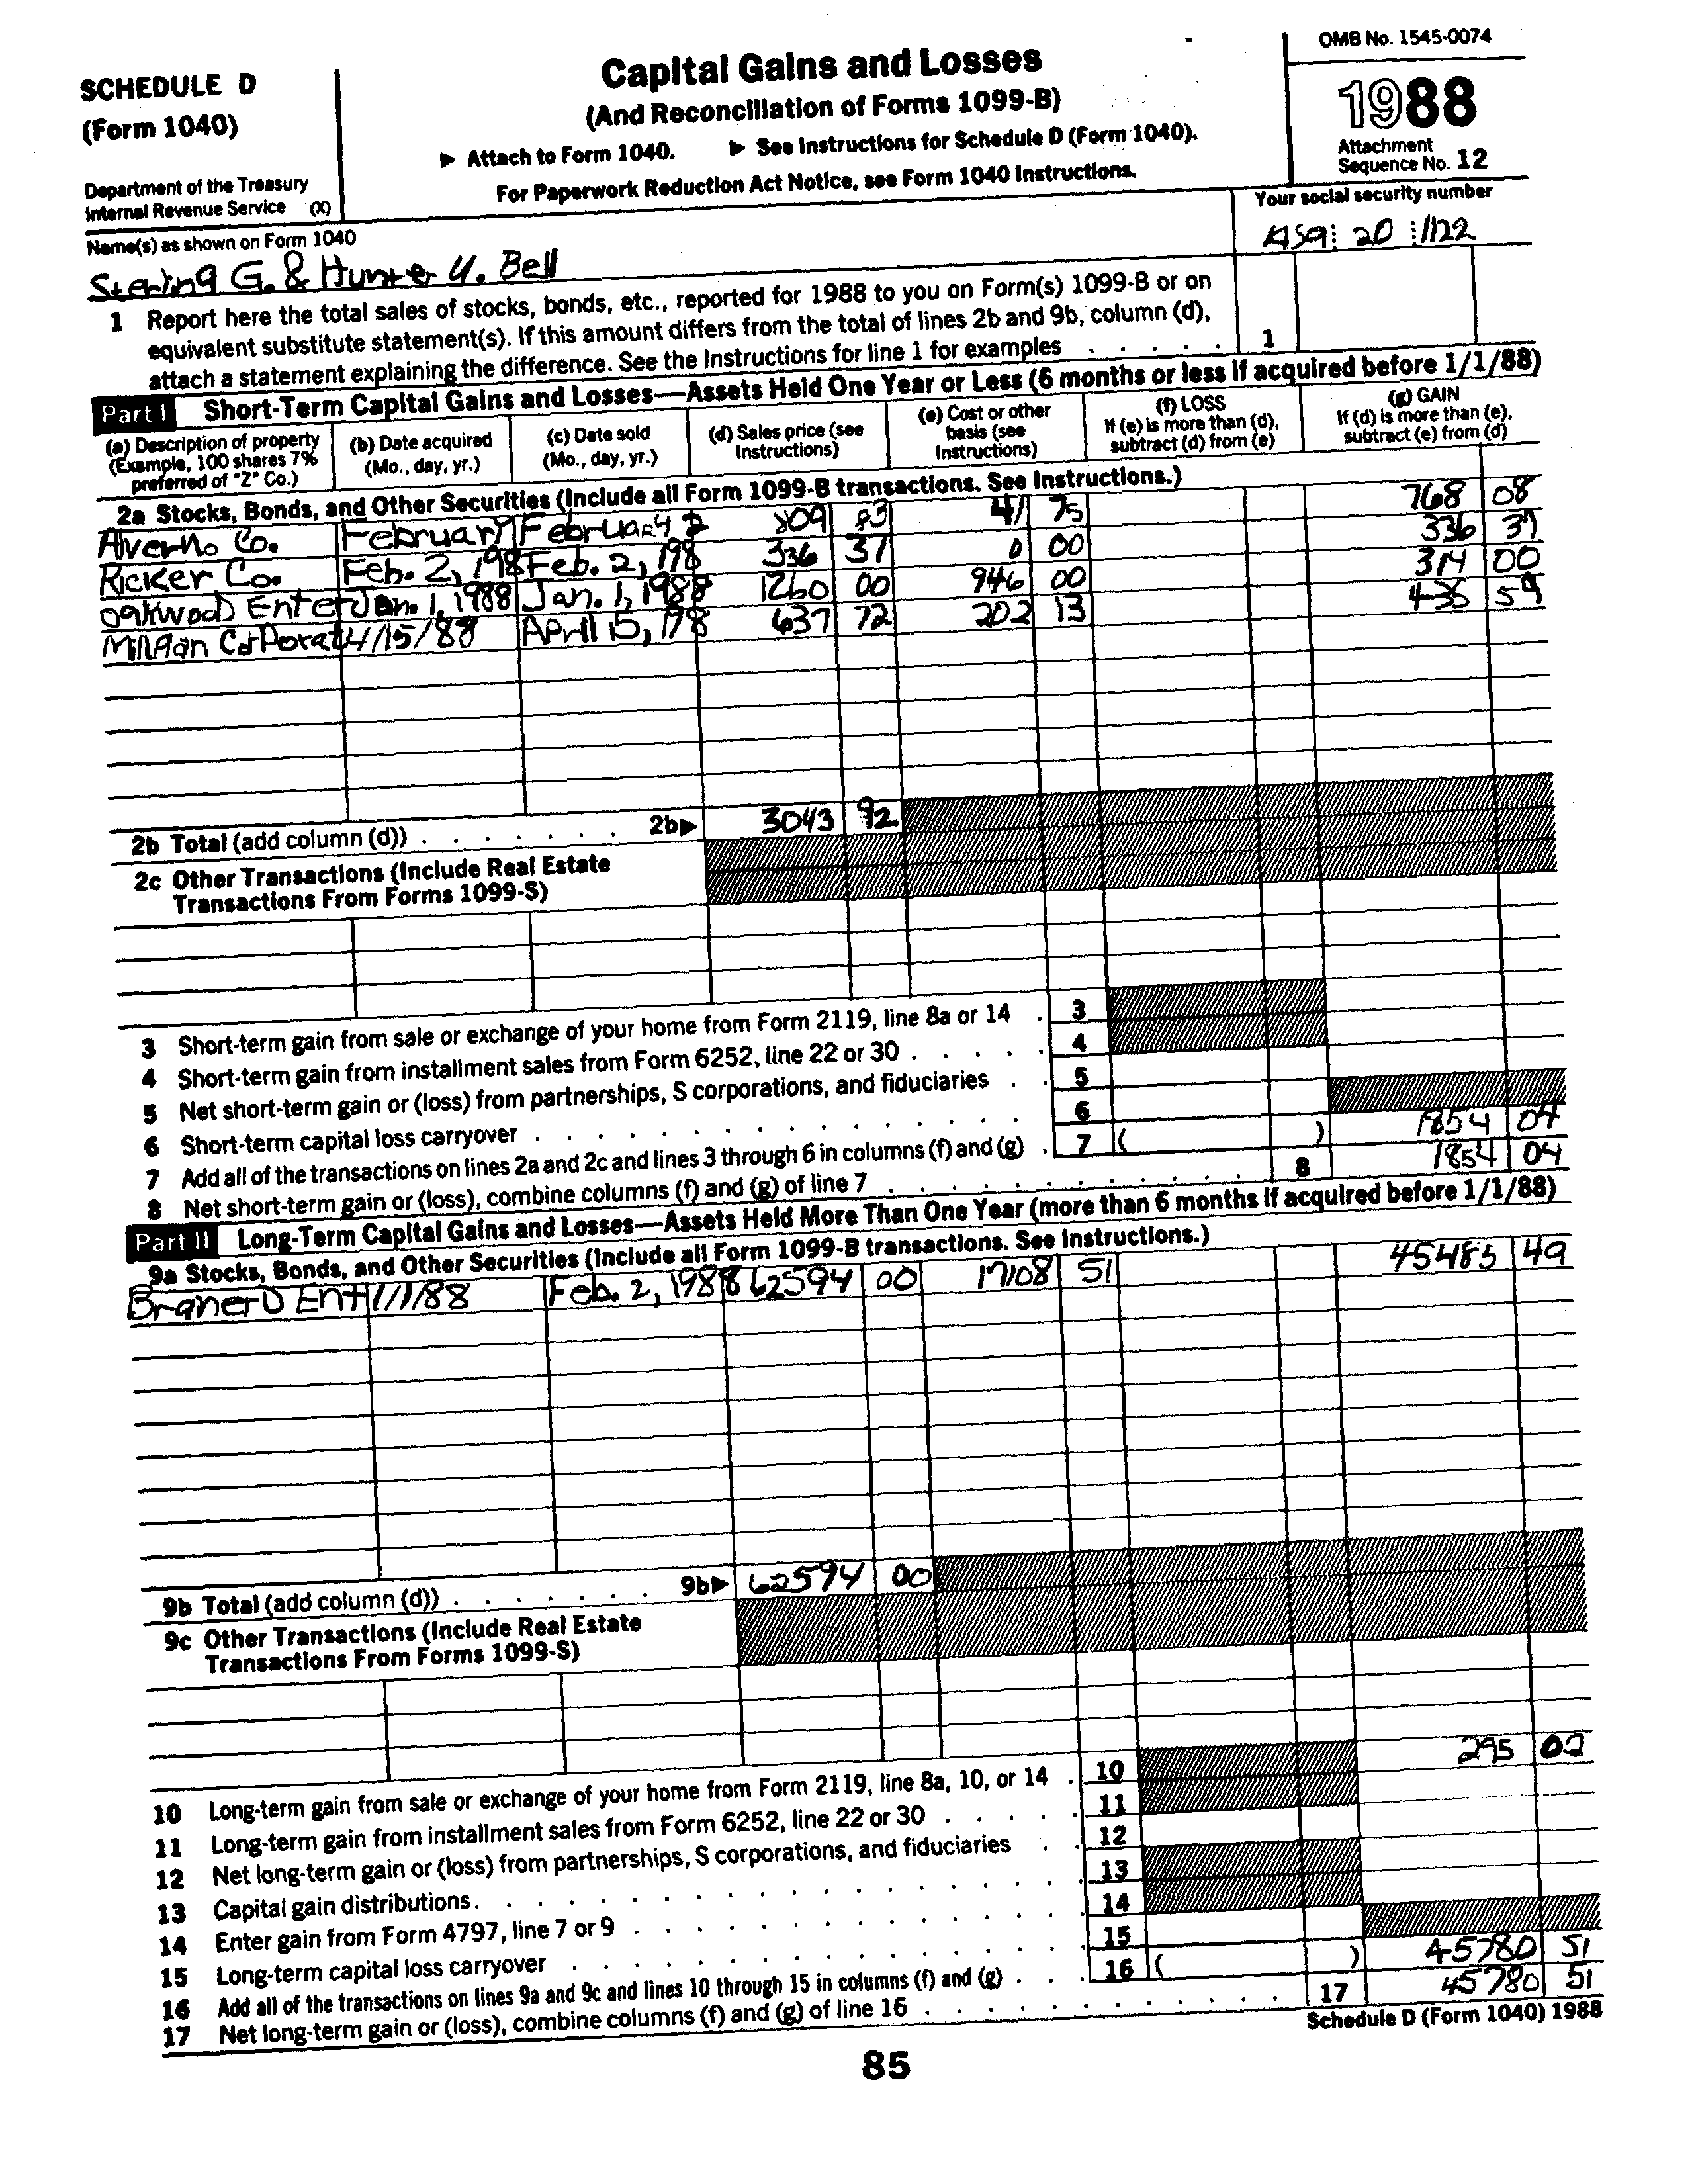 SCHEDULE D
(Form 1040)
Department of the Treasury
Internal Revenue Service (X)
Capital Gains and Losses
(And Reconciliation of Forms 1099-B)
▶ Attach to Form 1040. ▶ See Instructions for Schedule D (Form 1040).
For Paperwork Reduction Act Notice, see Form 1040 Instructions.
OMB No. 1545-0074
1988
Attachment
Sequence No. 12
Name(s) as shown on Form 1040
Sterling G. & Hunter U. Bell
Your social security number
20 1122
1 Report here the total sales of stocks, bonds, etc., reported for 1988 to you on Form(s) 1099-B or on
equivalent substitute statement(s). If this amount differs from the total of lines 2b and 9b, column (d),
attach a statement explaining the difference. See the Instructions for line 1 for examples . . . . . 1
Part I Short-Term Capital Gains and Losses—Assets Held One Year or Less (6 months or less if acquired before 1/1/88)
(a) Description of property
(Example, 100 shares 7%
preferred of "Z" Co.)
(b) Date acquired
(Mo., day, yr.)
(c) Date sold
(Mo., day, yr.)
(d) Sales price (see
Instructions)
(e) Cost or other
basis (see
Instructions)
(f) LOSS
If (e) is more than (d),
subtract (d) from (e)
(g) GAIN
If (d) is more than (e),
subtract (e) from (d)
2a Stocks, Bonds, and Other Securities (Include all Form 1099-B transactions. See Instructions.)
Alverno Co. February February 2 809 83 41 75 768 08
Ricker Co. Feb. 2, 198 Feb. 2, 198 336 37 0 00 336 37
Oakwood Enter Jan. 1, 1988 Jan. 1, 1988 1260 00 946 00 314 00
Milgan Corporat 4/15/88 April 15, 198 637 72 202 13 435 59
2b Total (add column (d)) . . . . . . . 2b▶ 3043 92
2c Other Transactions (Include Real Estate
Transactions From Forms 1099-S)
3 Short-term gain from sale or exchange of your home from Form 2119, line 8a or 14 . 3
4 Short-term gain from installment sales from Form 6252, line 22 or 30 . . . . . 4
5 Net short-term gain or (loss) from partnerships, S corporations, and fiduciaries . . 5
6 Short-term capital loss carryover . . . . . . . . . . . . . . . 6
7 Add all of the transactions on lines 2a and 2c and lines 3 through 6 in columns (f) and (g) . 7 ( ) 1854 04
8 Net short-term gain or (loss), combine columns (f) and (g) of line 7 . . . . . . . . . . . . 8 1854 04
Part II Long-Term Capital Gains and Losses—Assets Held More Than One Year (more than 6 months if acquired before 1/1/88)
9a Stocks, Bonds, and Other Securities (Include all Form 1099-B transactions. See Instructions.)
Branerd Ent 1/1/88 Feb. 2, 1988 62594 00 17108 51 45485 49
9b Total (add column (d)) . . . . . . . 9b▶ 62594 00
9c Other Transactions (Include Real Estate
Transactions From Forms 1099-S)
10 Long-term gain from sale or exchange of your home from Form 2119, line 8a, 10, or 14 . 10 295 02
11 Long-term gain from installment sales from Form 6252, line 22 or 30 . . . . . 11
12 Net long-term gain or (loss) from partnerships, S corporations, and fiduciaries . . 12
13 Capital gain distributions . . . . . . . . . . . . . . . . . 13
14 Enter gain from Form 4797, line 7 or 9 . . . . . . . . . . . . . 14
15 Long-term capital loss carryover . . . . . . . . . . . . . . . 15
16 Add all of the transactions on lines 9a and 9c and lines 10 through 15 in columns (f) and (g) . . . 16 ( ) 45780 51
17 Net long-term gain or (loss), combine columns (f) and (g) of line 16 . . . . . . . . . . . . 17 45780 51
Schedule D (Form 1040) 1988
85